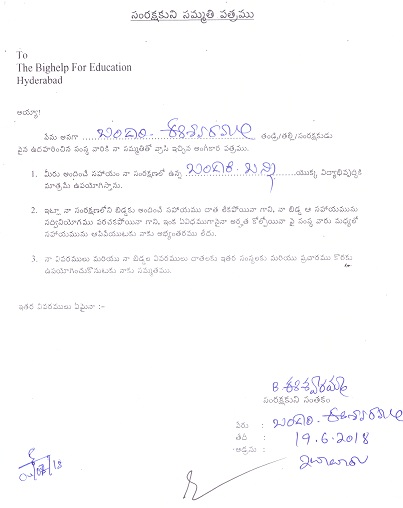 సంరక్షకుని సమ్మతి పత్రము
To
The Bighelp For Education
Hyderabad
అయ్యా!
పేమ అనగా బందెల - ఈశ్వరమ్మ తండ్రి/తల్లి/సంరక్షకుడు
పైన ఉదహరించిన సంస్థ వారికి నా సమ్మతితో వ్రాసి ఇచ్చిన అంగీకార పత్రము.
1. మీరు అందించే సహాయం నా సంరక్షణలో ఉన్న యొక్క విద్యాభివృద్ధికి
మాత్రమే ఉపయోగిస్తాను.
2. ఇట్లా నా సంరక్షణలోని బిడ్డకు అందించే సహాయము దాత లేకపోయినా గాని, నా బిడ్డ ఆ సహాయమును
సద్వినియోగము పరచకపోయినా గాని, ఇంక ఏవిధముగానైనా అర్హత కోల్పోయినా పై సంస్థ వారు మధ్యలో
సహాయమును ఆపివేయుటకు నాకు అభ్యంతరము లేదు.
3. నా వివరములు మరియు నా బిడ్డల వివరములు దాతలకు ఇతర సంస్థలకు మరియు ప్రచారము కొరకు
ఉపయోగించుకొనుటకు నాకు సమ్మతము.
ఇతర వివరములు ఏమైనా :-
B ఈశ్వరమ్మ
సంరక్షకుని సంతకం
పేరు : ఈశ్వరమ్మ
తేది : 19.6.2018
అడ్రసు :